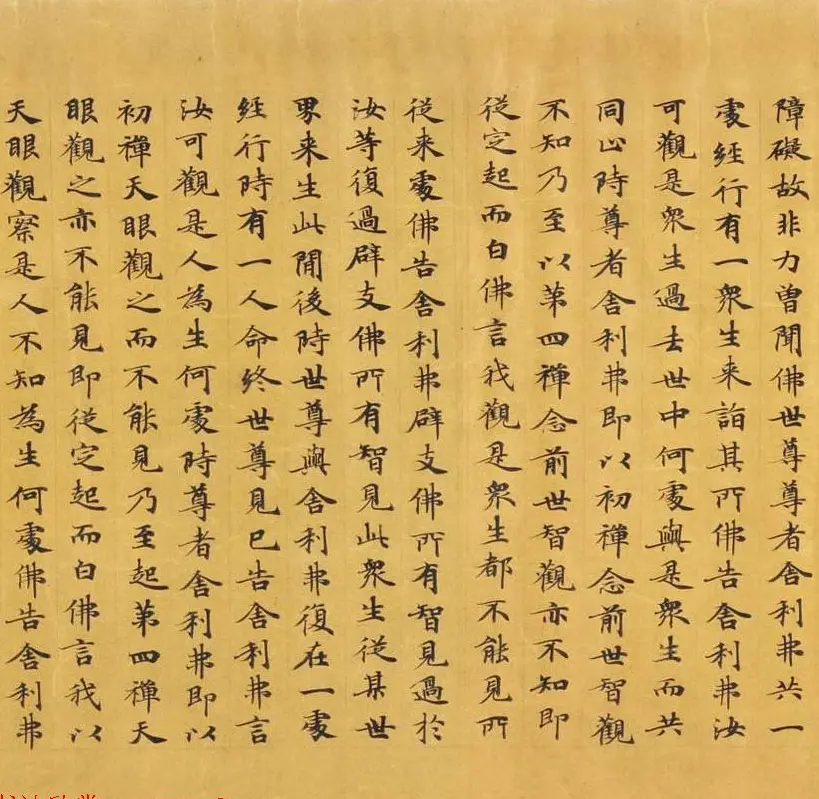 障礙故非力曽聞佛世尊尊者舎利弗共一
處經行有一衆生来詣其所佛告舎利弗汝
可觀是衆生過去世中何處與是衆生而共
同止時尊者舎利弗即以初禪念前世智觀
不知乃至以第四禪念前世智觀亦不知即
從定起而白佛言我觀是衆生都不能見所
從来處佛告舎利弗辟支佛所有智見過於
汝等復過辟支佛所有智見此衆生從某世
界来生此間後時世尊與舎利弗復在一處
經行時有一人命終世尊見已告舎利弗言
汝可觀是人為生何處時尊者舎利弗即以
初禪天眼觀之而不能見乃至起第四禪天
眼觀之亦不能見即從定起而白佛言我以
天眼觀察是人不知為生何處佛告舎利弗